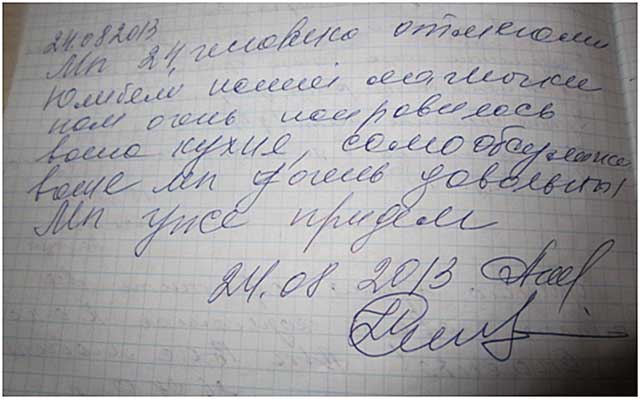 24.08 2013
Мп 24 человека отмечали
Юлибелю нашей мамочки
нам очень понравилась
ваша кухня, самообслужи
ваше мп очень довольны!
Мп уже придем
24.08. 2013